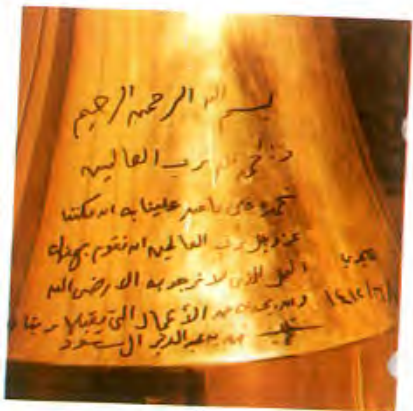 بسم الله الرحمن الرحيم
والحمد لله رب العالمين
نحمده على ما من علينا به ان مكننا
عز وجل رب العالمين ان نقوم بهذا
العمل الذي لا نرجو به الا رضى الله
من الأعمال التي يتقبلها ربنا
فهد بن عبدالعزيز ال سعود
١٤١٢